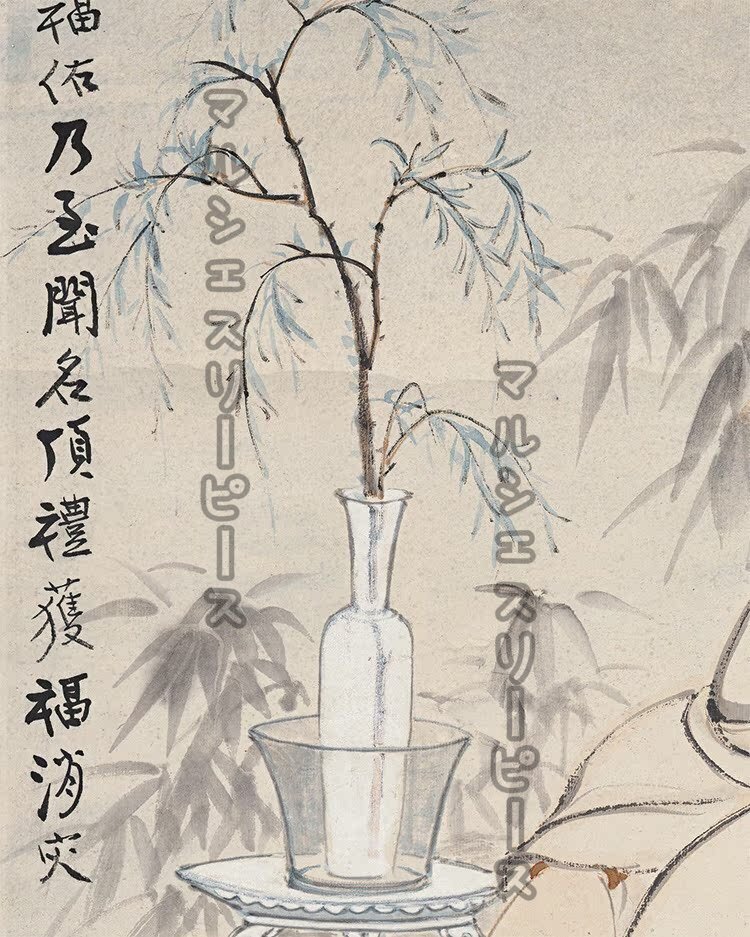 福佑乃至聞名頂禮獲福消灾
マルシェスリーピース
マルシェスリーピース